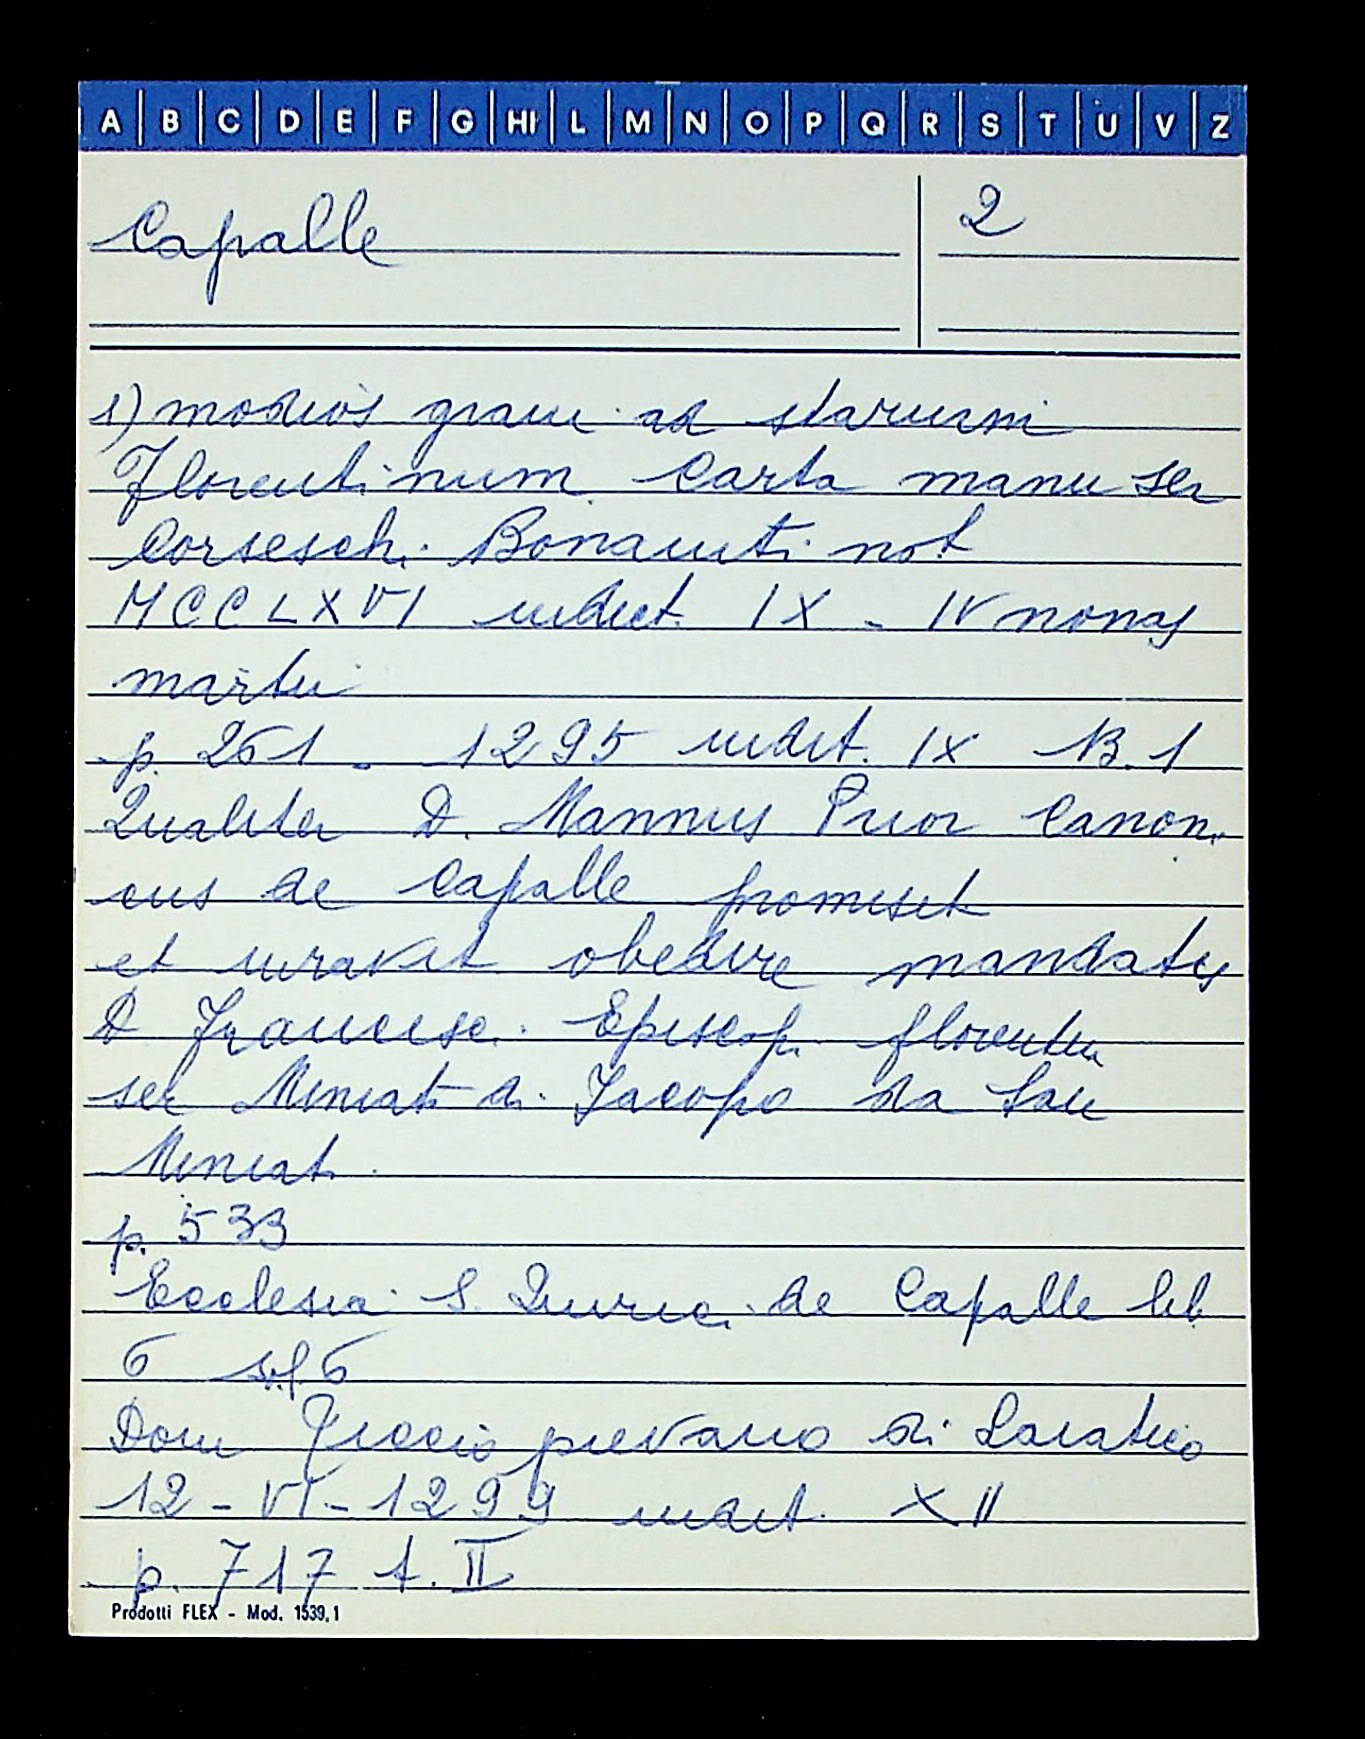 A B C D E F G HI L M N O P Q R S T U V Z
Capalle 2
1) modios grani ad starium
Florentinum Carta manu ser
Corseschi Bonaiuti not
MCCLXVI indict. IX - IV nonas
martii
p. 261 - 1295 indict. IX N.B. 1
Qualiter D. Mannus Prior Canoni
cus de Capalle promisit
et iuravit obedire mandatis
D Francisc. Episcop. florentin
ser Miniati di Iacopo da San
Miniat.
p. 533
Ecclesia S. Quirici de Capalle lib
6 sol. 6
Dom pievano di
12 - VI - 1299 indict. XII
p. 717 t. II
Prodotti FLEX - Mod. 1539,1